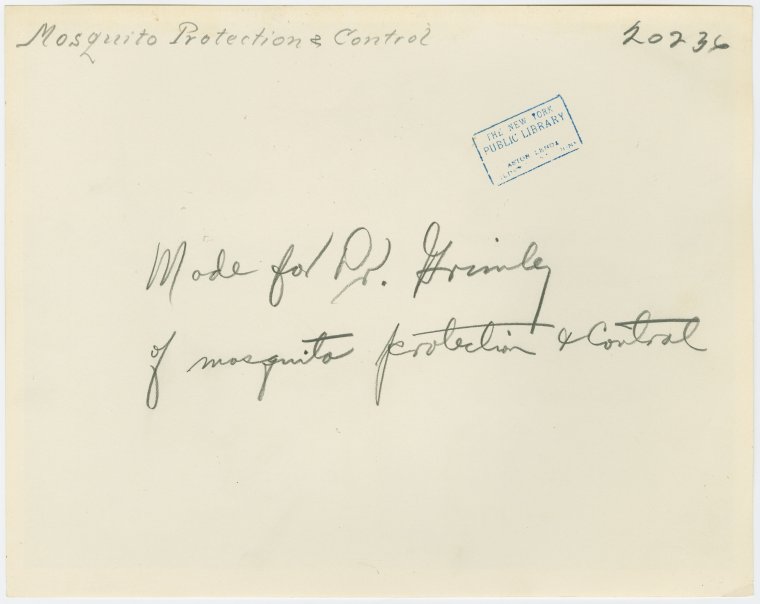 Mosquito Protection & Control
20236
THE NEW YORK
PUBLIC LIBRARY
ASTOR LENOX
Made for Dr. Grimley
of mosquito protection & Control